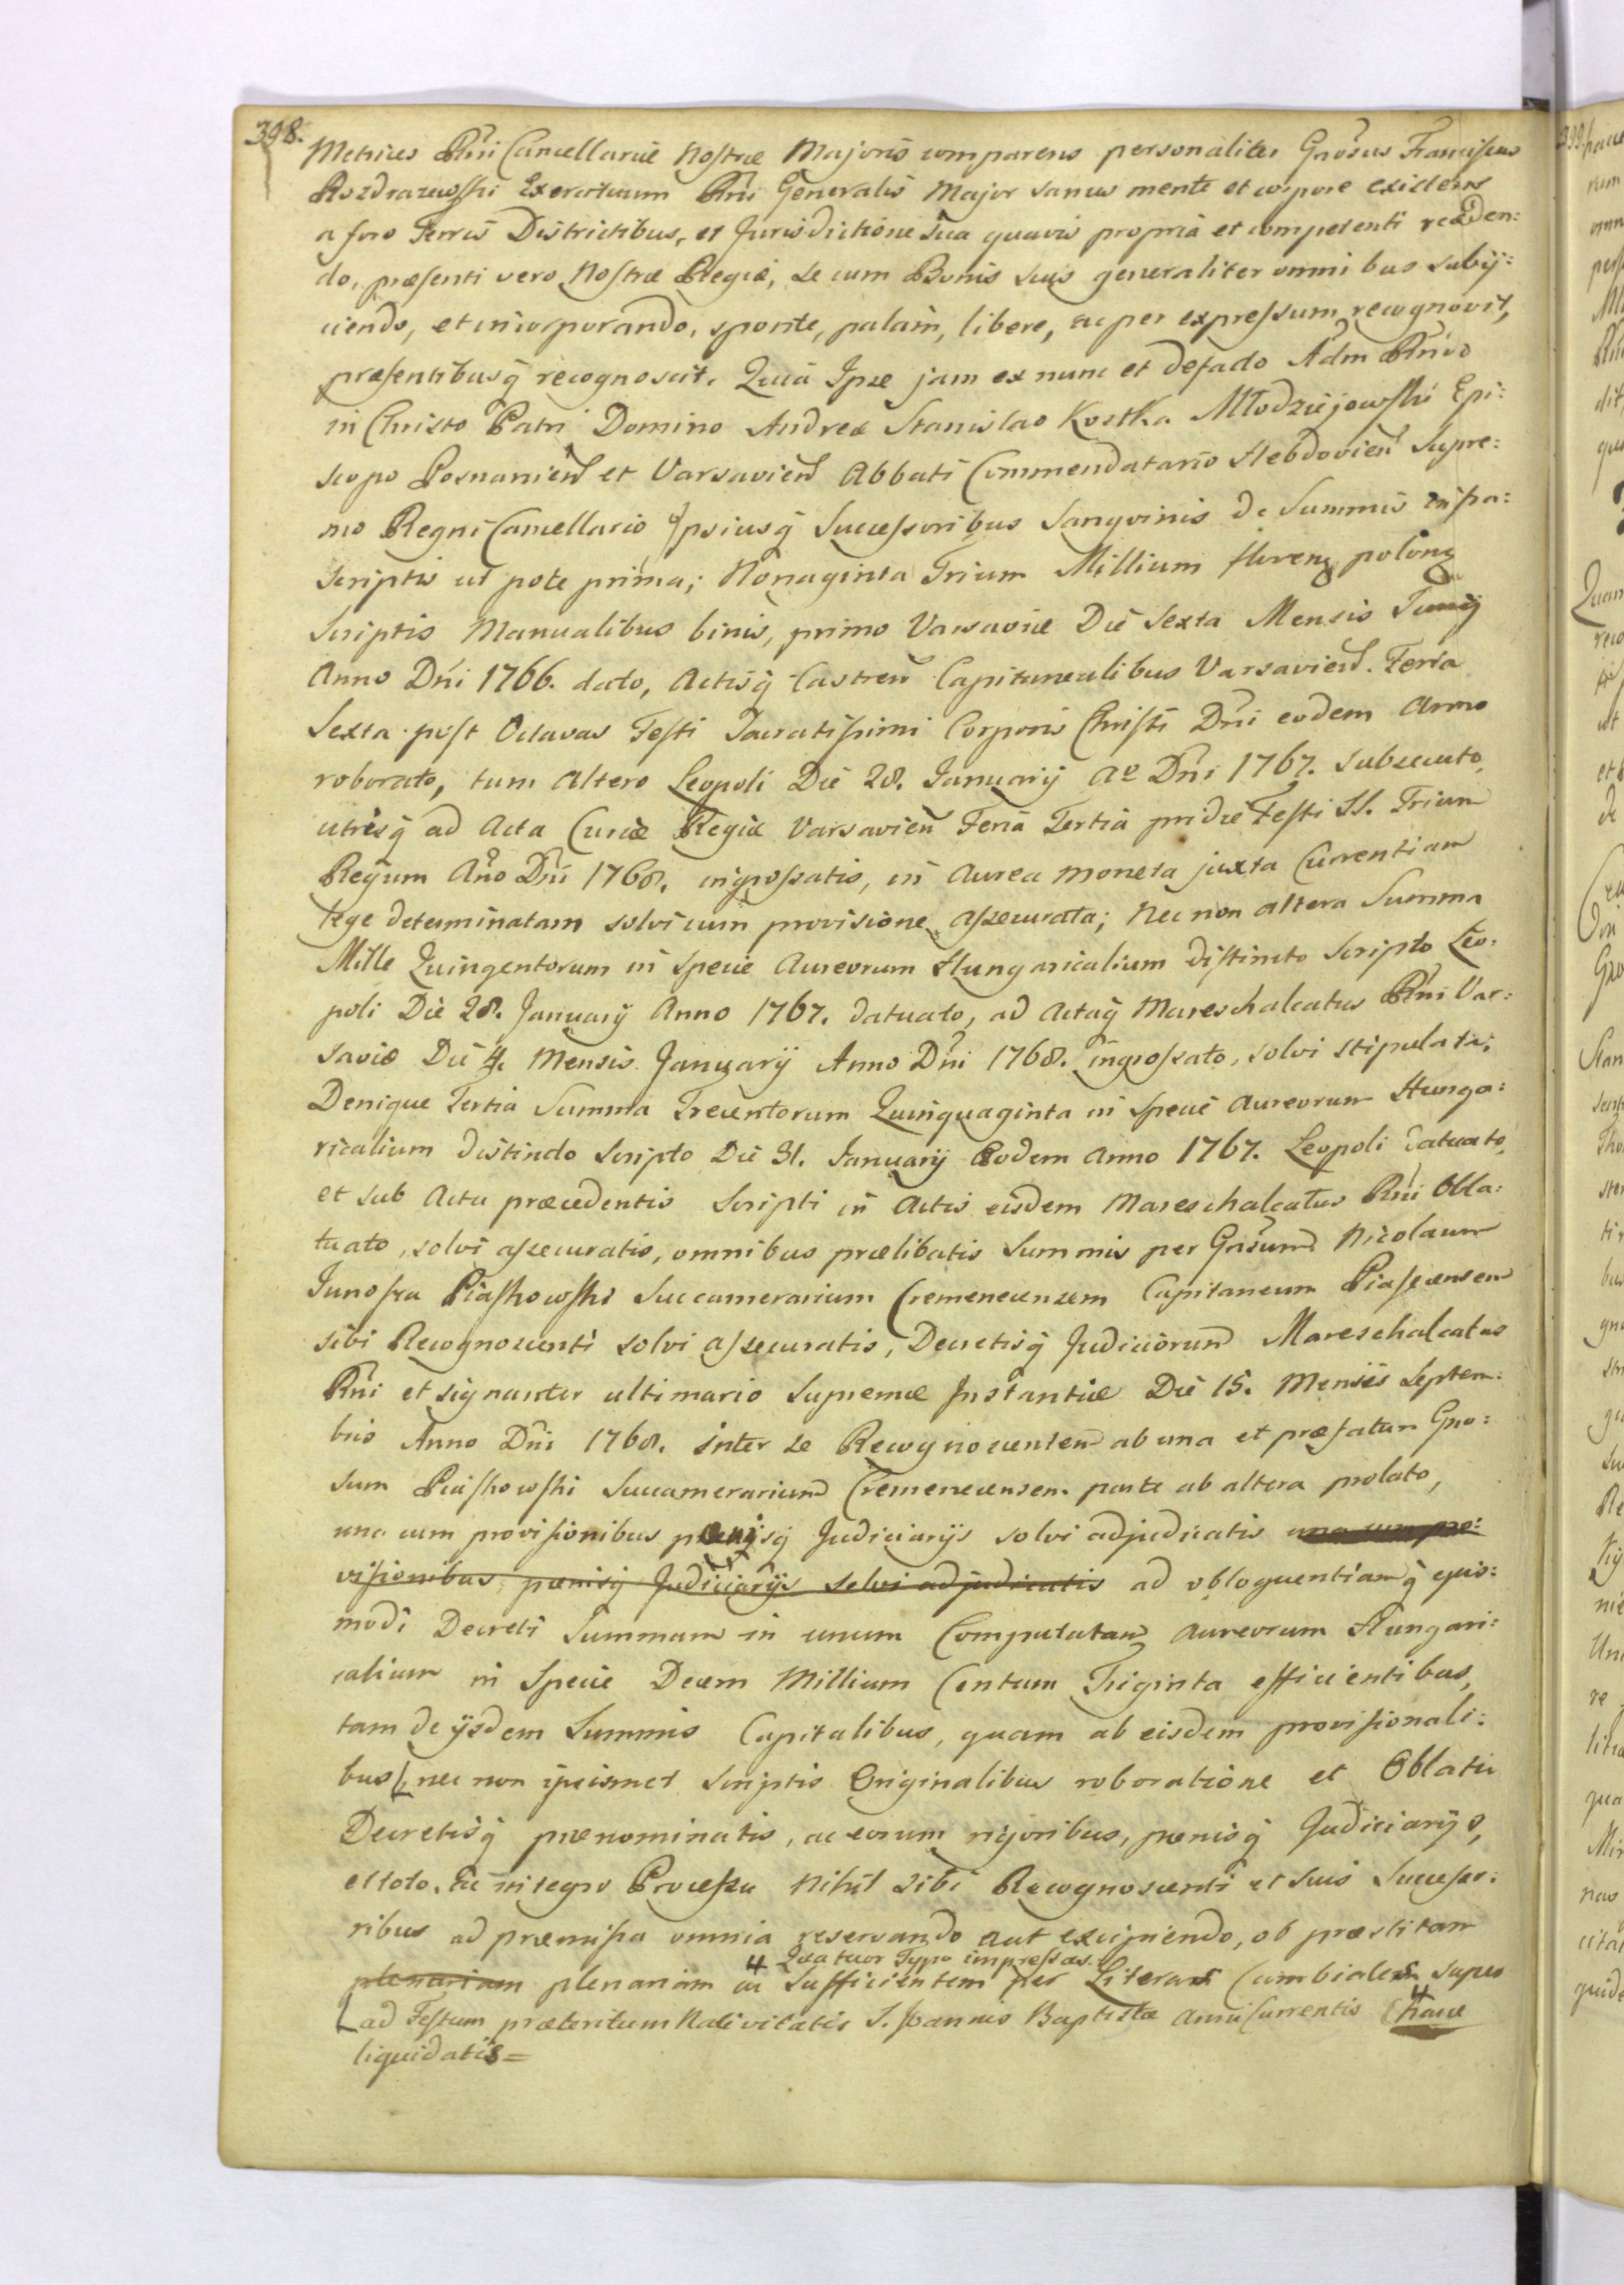 398.
Metrices Rni Cancellariæ Nostræ Majoris comparens personaliter Gnosus Franciscus
Rozdrazewski Exercituum Rni Generalis Major sanus mente et corpore existens
a foro Terris Districtibus, et Jurisdictione sua quavis propria et competenti receden:
do, præsenti vero Nostræ Regiæ, se cum Bonis suis generaliter omnibus subij:
ciendo, et incorporando, sponte, palam, libere, ac per expressum recognovit,
præsentibusq recognoscit. Quia Ipse jam ex nunc et defacto Adm Rndo
in Christo Patri Domino Andreæ Stanislao Kostka Młodziejowski Epi:
scopo Posnanien et Varsavien Abbati Commendatario Hebdovien Supre:
mo Regni Cancellario Ipsiusq Successoribus Sangvinis de Summis infra:
scriptis ut pote prima; Nonaginta Trium Millium floren polon
Scriptis Manualibus binis, primo Varsaviæ Die Sexta Mensis Junij
Anno Dni 1766. dato, Actisq Castren Capitanealibus Varsavien. Feria
Sexta post Octavas Festi Sacratissimi Corporis Christi Dni eodem Anno
roborato, tum altero Leopoli Die 28. Januarij Ao Dni 1767. subsecuto,
utrisq ad Acta Curiæ Regiæ Varsavien Feria Tertia pridie Festi SS. Trium
Regum Ano Dni 1768. ingrossatis, in Aurea moneta juxta Currentiam
lege determinatam solvi cum provisione assecurata; Nec non altera Summa
Mille Quingentorum in specie Aureorum Hungaricalium distincto Scripto Leo:
poli Die 28. January Anno 1767. datuato, ad Actaq Mareschalcatus Rni Var:
saviæ Die 4. Mensis Januarij Anno Dni 1768. ingrossato, solvi stipulata;
Denique Tertia Summa Trecentorum Quinquaginta in specie Aureorum Hunga:
ricalium distincto Scripto Die 31. Januarij Eodem Anno 1767. Leopoli datuato,
et sub Actu præcedentis Scripti in Actis eisdem Mareschalcatus Rni Obla:
tuato, solvi assecuratis, omnibus prælibatis Summis per Gnosum Nicolaum
Junosza Piaskowski Succamerarium Cremenecensem Capitaneum Piasecensem
sibi Recognoscenti solvi assecuratis, Decretisq Judiciorum Mareschalcatus
Rni et signanter ultimario Supremæ Instantiæ Die 15. Mensis Septem:
bris Anno Dni 1768. inter se Recognoscentem ab una et præfatum Gno:
sum Piaskowski Succamerarium Cremenecensem parte ab altera prolato,
una cum provisionibus pænisq Judiciarijs solvi adjudicatis una cum pro:
visionibus pænisq Judiciarijs solvi adjudicatis ad obloquentiamq ejus:
modi Decreti Summam in unum Computatam Aureorum Hungari:
calium in Specie Decem Millium Centum Triginta efficientibus,
tam de ijsdem Summis Capitalibus, quam ab eisdem provisionali:
bus nec non ipsismet Scriptis Originalibus roboratione et Oblata
Decretisq prænominatis, ac eorum rigoribus, pænisq Judiciarijs,
et toto, ac integro Processu Nihil sibi Recognoscenti et Suis Successo:
ribus ad præmissa omnia reservando aut excipiendo, ob præstitam
Quatuor Typo impressas.
plenariam plenariam ac Sufficientem per Literas Cambiales super
ad Festum præteritum Nativitatis S. Joannis Baptistæ Anni Currentis hanc
liquidatis =